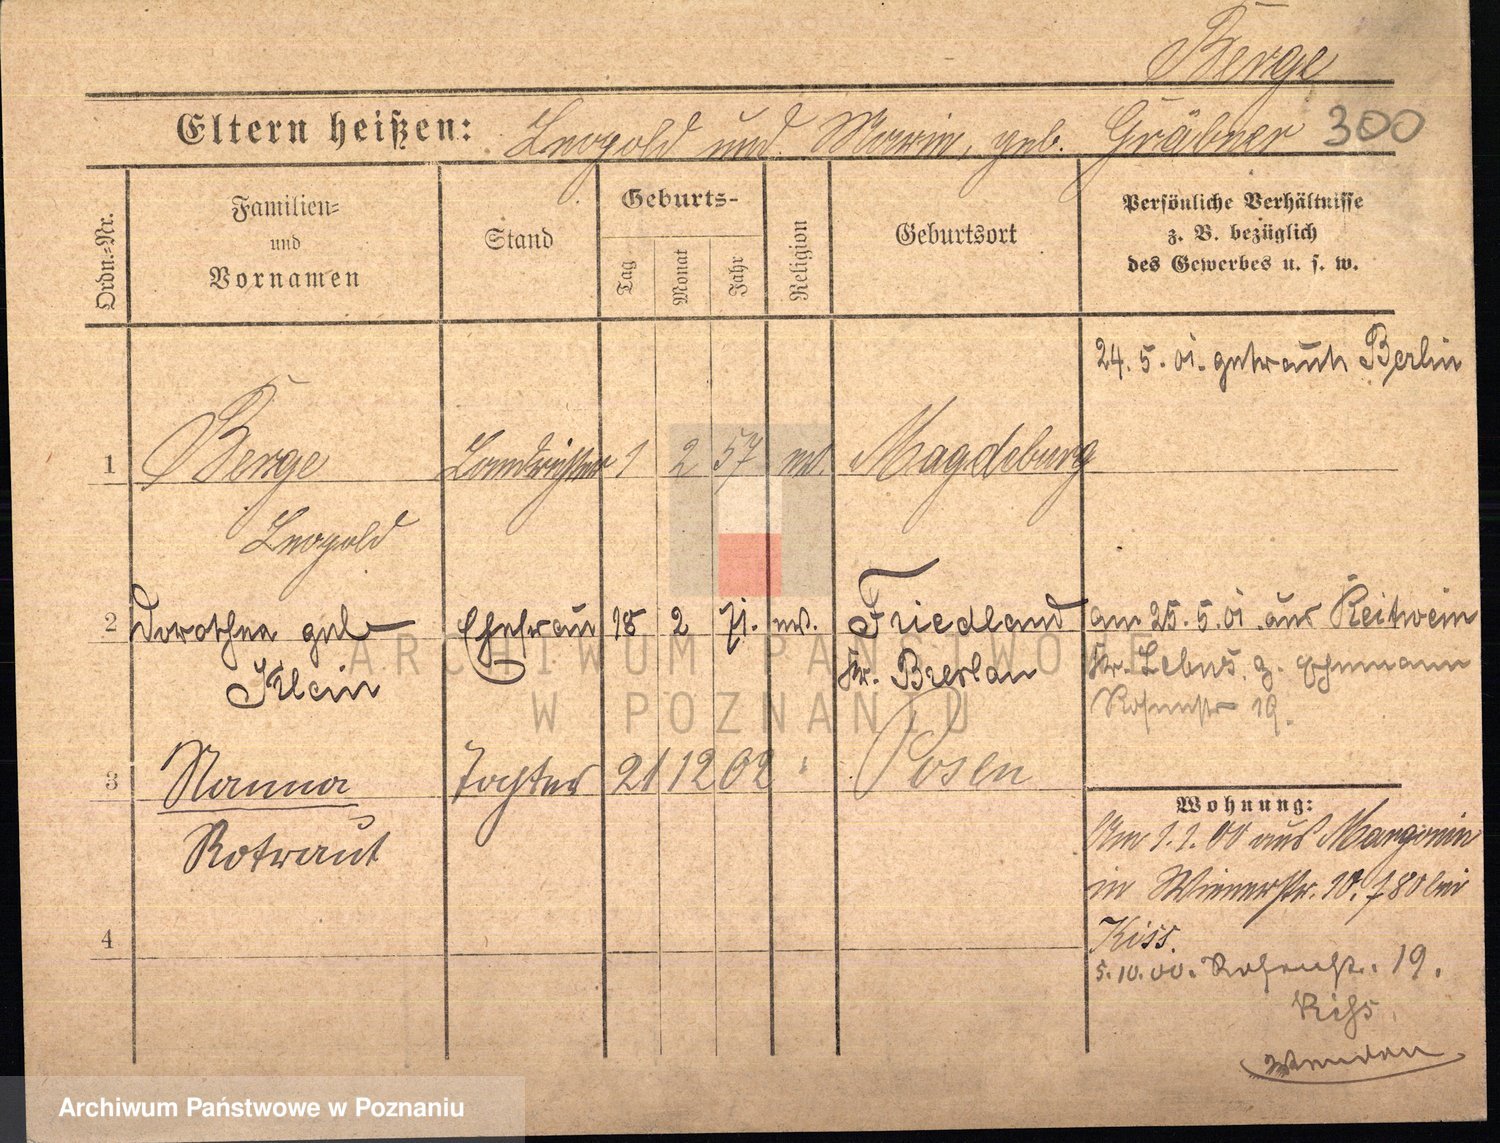 Berge
Eltern heißen: Leopold und Marie, geb. Gräbner 300
Ordn.-Nr.
Familien-
und
Vornamen
Stand
Geburts-
Tag
Monat
Jahr
Religion
Geburtsort
Persönliche Verhältnisse
z. B. bezüglich
des Gewerbes u. s. w.
24. 5. 01. getraut Berlin
1 Berge Landrichter 1 2 57 ev Magdeburg
Leopold
2 Dorothea geb Ehefrau 18 2 71. ev. Friedland am 25. 5. 01. aus Reitwein
Klein Kr. Breslau Kr. Lebus. z. Ehemann
Rosenstr 19.
3 Nanna Tochter 21 12 02 " Posen
Rotraut
Wohnung:
Am 1.1.00 aus Margonin
in Wienerstr. 10. bei
Kiss.
5.10.00. Rosenstr. 19.
4
ARCHIWUM PAŃSTWOWE
W POZNANIU
Archiwum Państwowe w Poznaniu